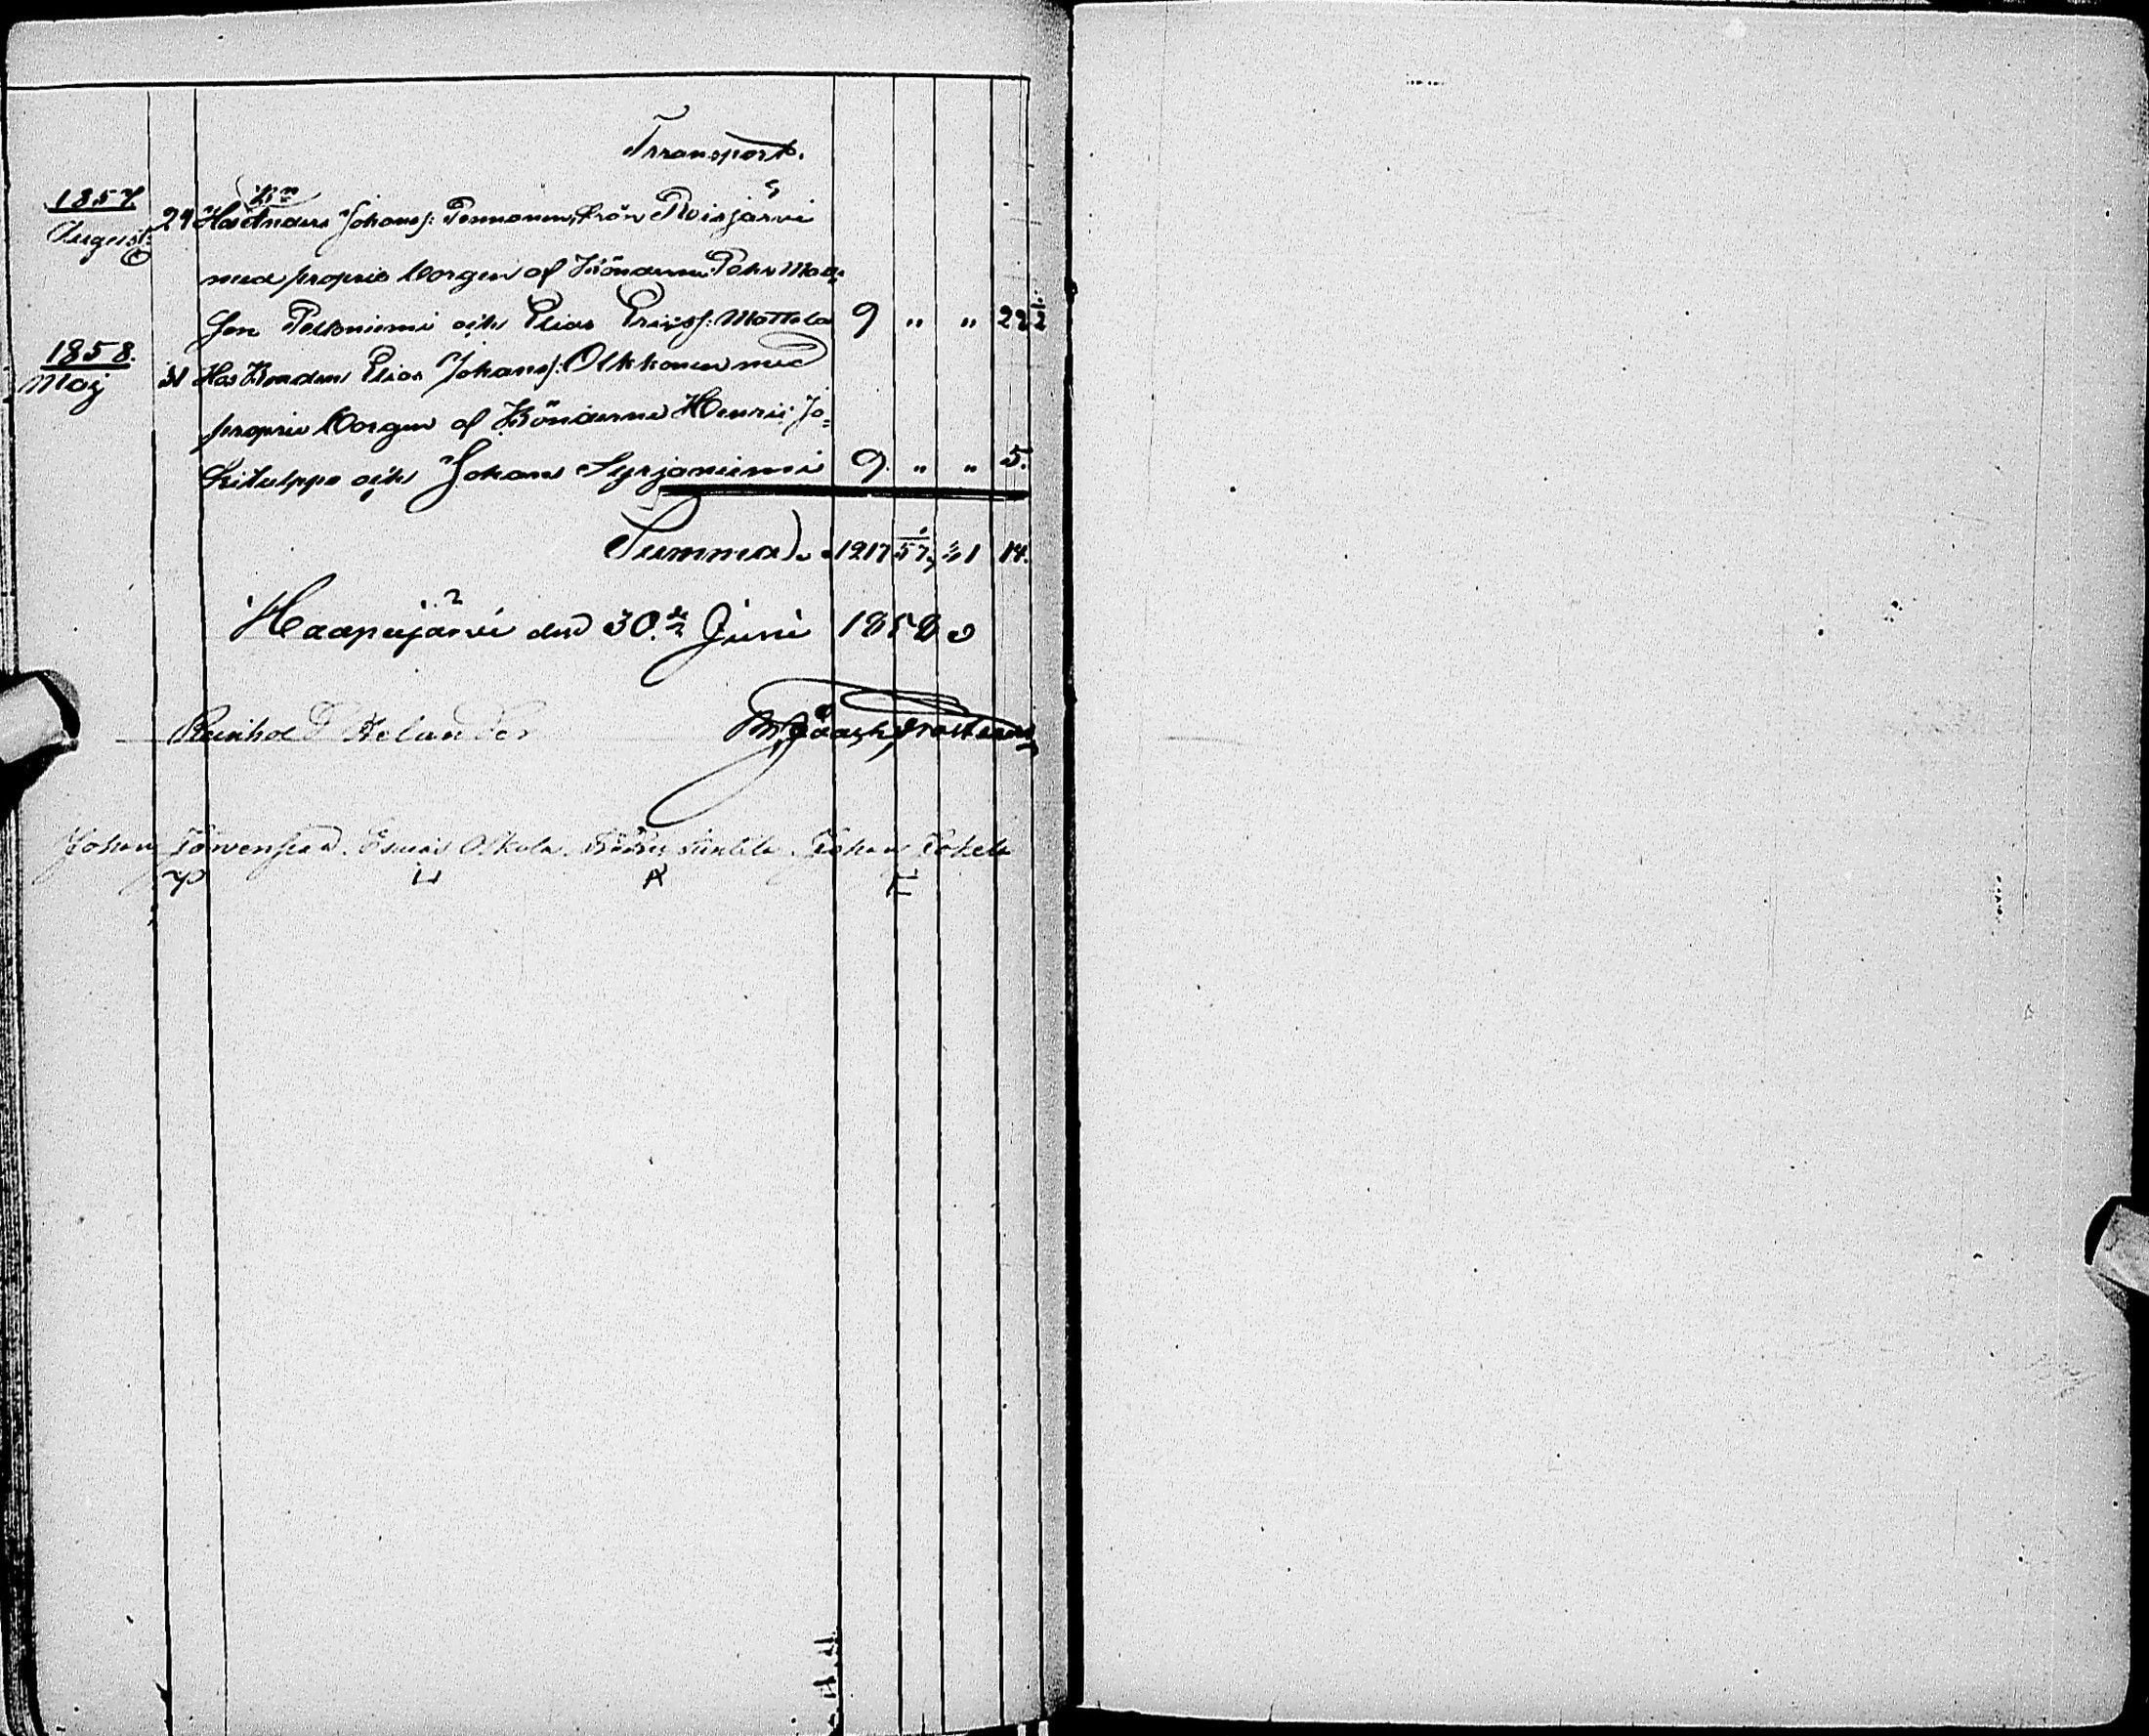 Transport.
1857. Bn
August 24 Hos Anders Johansj: Pennanen från Reisjärvi
med proprie borgen af Bönderne Pehr Matts=
son Peltoniemi och Elias Ericsj: Mattela 9 " " 22 1/2
1858.
Maj 31 Hos Bonden Elias Johansj: Olkkonen med
proprie borgen af Bönderne Henric Jo=
Kitulppo och Johan Syrjäniemi 9. " " 5.
Summa 1217 57 1 14.
Haapajärvi den 30de Juni 1858
Reinhold Helander
Johan Esaias Olkola Johan Kokela